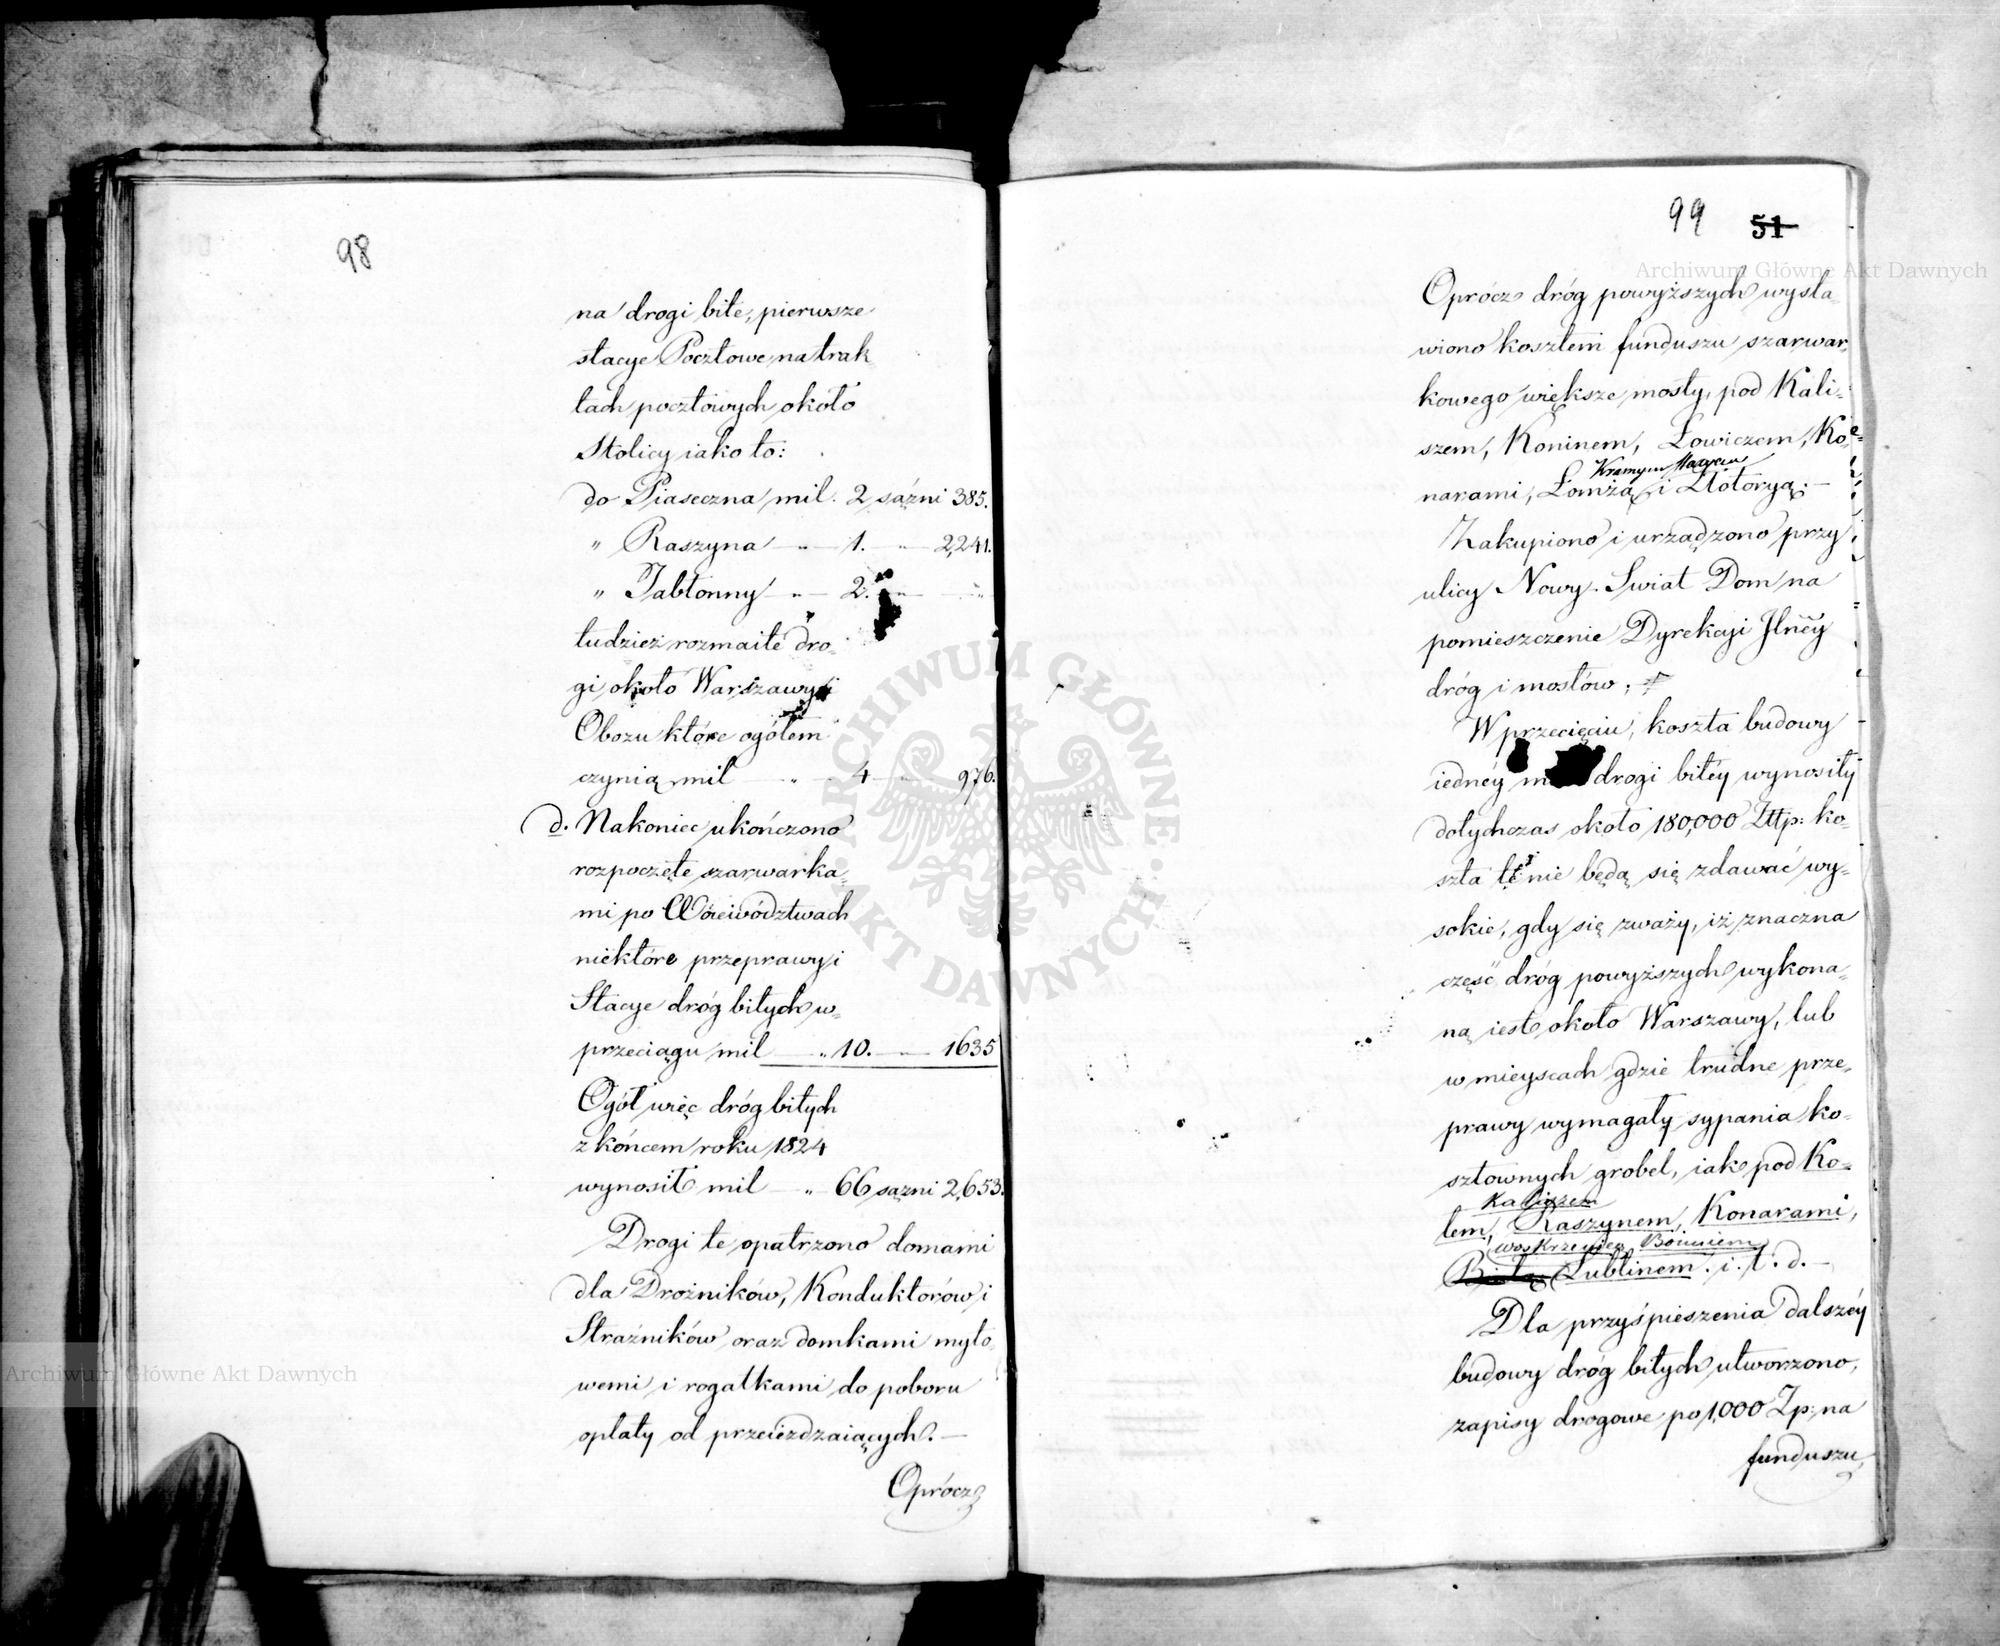 98
na drogi bite, pierwsze
stacye Pocztowe na trak
tach pocztowych około
Stolicy iako to:
do Piaseczna mil. 2 sążni 385.
" Raszyna — " — 1. — " — 2,241.
" Jabłonny — " — 2. — " — "
tudzież rozmaite dro-
gi około Warszawy i
Obozu które ogółem
czynią mil — " — 4 — " — 976.
d. Nakoniec ukończono
rozpoczęte szarwarka=
mi po Woiewództwach
niektóre przeprawy i
Stacye dróg bitych w=
przeciągu mil — " 10. — " — 1635
Ogół więc dróg bitych
z końcem roku 1824
wynosił mil — " 66 sążni 2,653.
Drogi te opatrzono domami
dla Drożników, Konduktorów i
Strażników oraz domkami myto
wemi i rogatkami do poboru
opłaty od przeieżdzaiących. —
Oprócz
99 51
Archiwum Główne Akt Dawnych
Oprócz dróg powyższych wysta=
wiono kosztem funduszu szarwar=
kowego większe mosty, pod Kali=
szem, Koninem, Łowiczem, Ko=
narami, Łomżą i Złotoryą: —
Zakupiono i urządzono przy
ulicy Nowy-Swiat Dom na
pomieszczenie Dyrekcyi Jlnéy
dróg i mostów;
W przecięciu, koszta budowy
iednéy drogi bitéy wynosiły
dotychczas około 180,000 Złtp: ko=
szta te nie będą się zdawać wy=
sokie, gdy się zważy, iż znaczna
część dróg powyższych wykona=
ną iest około Warszawy, lub
w mieyscach gdzie trudne prze=
prawy wymagały sypania ko=
sztownych grobel, iak pod Ko=
Kaliszem
łem, Raszynem, Konarami,
Woskrzenicą Boimiem
Lublinem. i. t. d. —
Dla przyśpieszenia dalszéy
budowy dróg bitych utworzono,
zapisy drogowe po 1,000 Zp: na
funduszu,
Archiwum Główne Akt Dawnych
ARCHIWUM GŁÓWNE · AKT DAWNYCH ·